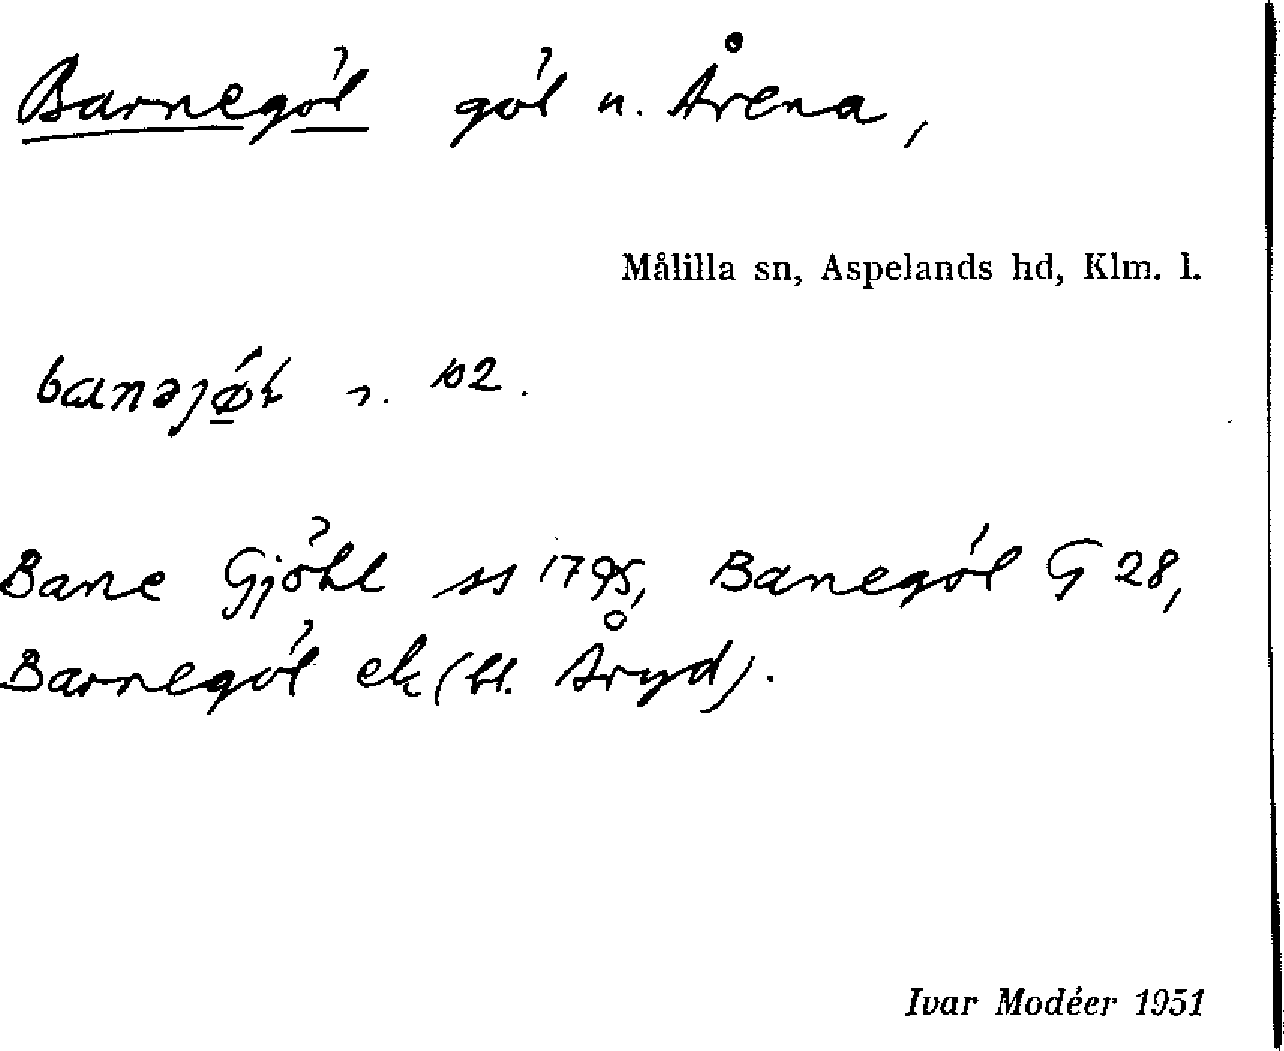 Barnegöl göl n. Årena,
Målilla sn, Aspelands hd, Klm. l.
Bane Gjöhl ss 1795, Banegöl G 28,
Barnegöl ek (bl. Åryd).
Ivar Modéer 1951